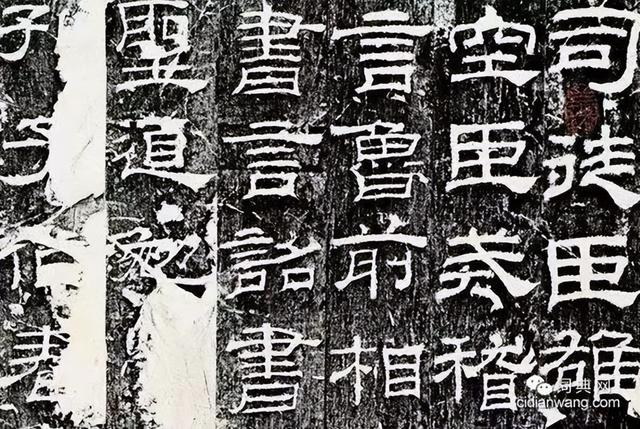 司徒臣雄
空臣戒稽
言魯前相
書言詔書
聖道勉
子
词典网
cidianwang.com